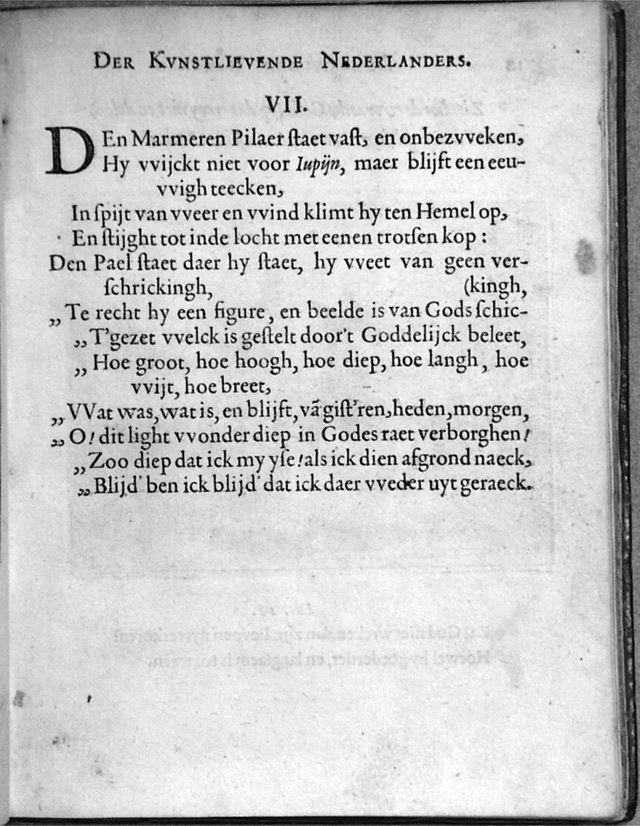 DER KVNSTLIEVENDE NEDERLANDERS.
VII.
DEn Marmeren Pilaer ſtaet vaſt, en onbezvveken,
Hy vvijckt niet voor Iupijn, maer blijft een eeu-
vvigh teecken,
In ſpijt van vveer en vvind klimt hy ten Hemel op,
En ſtijght tot inde locht met eenen trotſen kop:
Den Pael ſtaet daer hy ſtaet, hy vveet van geen ver-
ſchrickingh, (kingh,
„Te recht hy een figure, en beelde is van Gods ſchic-
„T'gezet vvelck is geſtelt door't Goddelijck beleet,
„Hoe groot, hoe hoogh, hoe diep, hoe langh, hoe
vvijt, hoe breet,
„VVat was, wat is, en blijft, vā giſt'ren, heden, morgen,
„O! dit light vvonder diep in Godes raet verborghen!
„Zoo diep dat ick my yſe! als ick dien afgrond naeck,
„Blijd' ben ick blijd' dat ick daer vveder uyt geraeck.